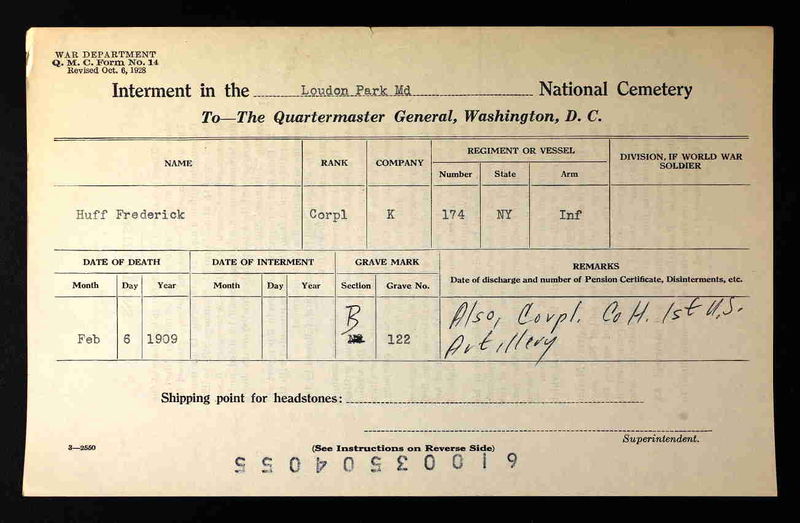 WAR DEPARTMENT
Q. M. C. Form No. 14
Revised Oct. 6, 1928
Interment in the Loudon Park Md National Cemetery
To—The Quartermaster General, Washington, D. C.
NAME RANK COMPANY REGIMENT OR VESSEL DIVISION, IF WORLD WAR SOLDIER
Number State Arm
Huff Frederick Corpl K 174 NY Inf
DATE OF DEATH DATE OF INTERMENT GRAVE MARK REMARKS
Month Day Year Month Day Year Section Grave No. Date of discharge and number of Pension Certificate, Disinterments, etc.
B Also, Corpl. Co H. 1st U.S.
Feb 6 1909 122 Artillery
Shipping point for headstones:
Superintendent.
3—2550
(See Instructions on Reverse Side)
61003504055